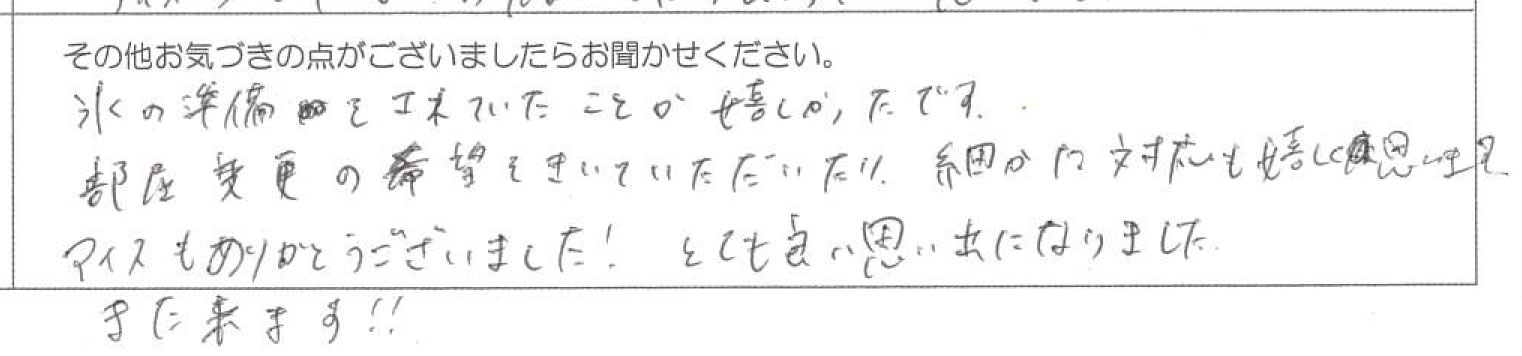 その他お気づきの点がございましたらお聞かせください。
氷の準備をして下さっていたことが嬉しかったです。
部屋変更の希望をきいていただいたり、細かな対応も嬉しく思います
アイスもありがとうございました! とても良い思い出になりました
また来ます!!